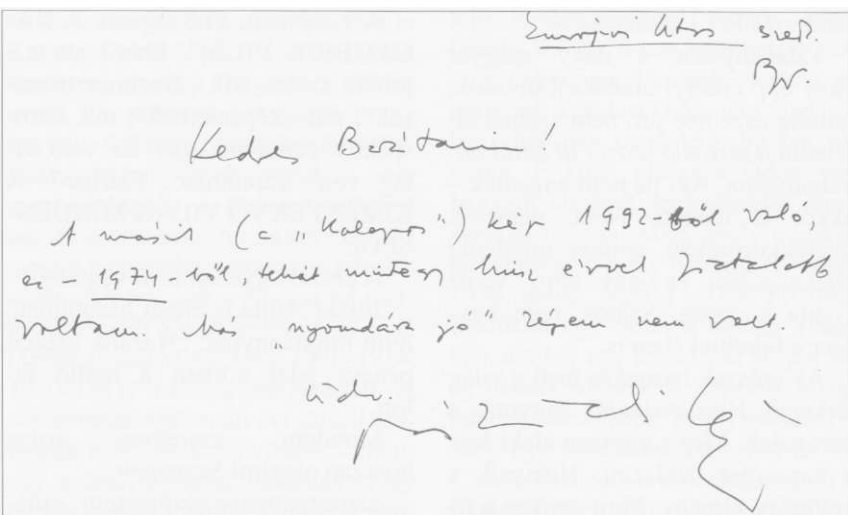 Európai Utas szerk.
Bp.
Kedves Barátaim!
A másik (a „Kalapos") kép 1992-ből való,
ez – 1974-ből, tehát mintegy húsz évvel fiatalabb
voltam. Más „nyomdász jó" képem nem volt.
Üdv.